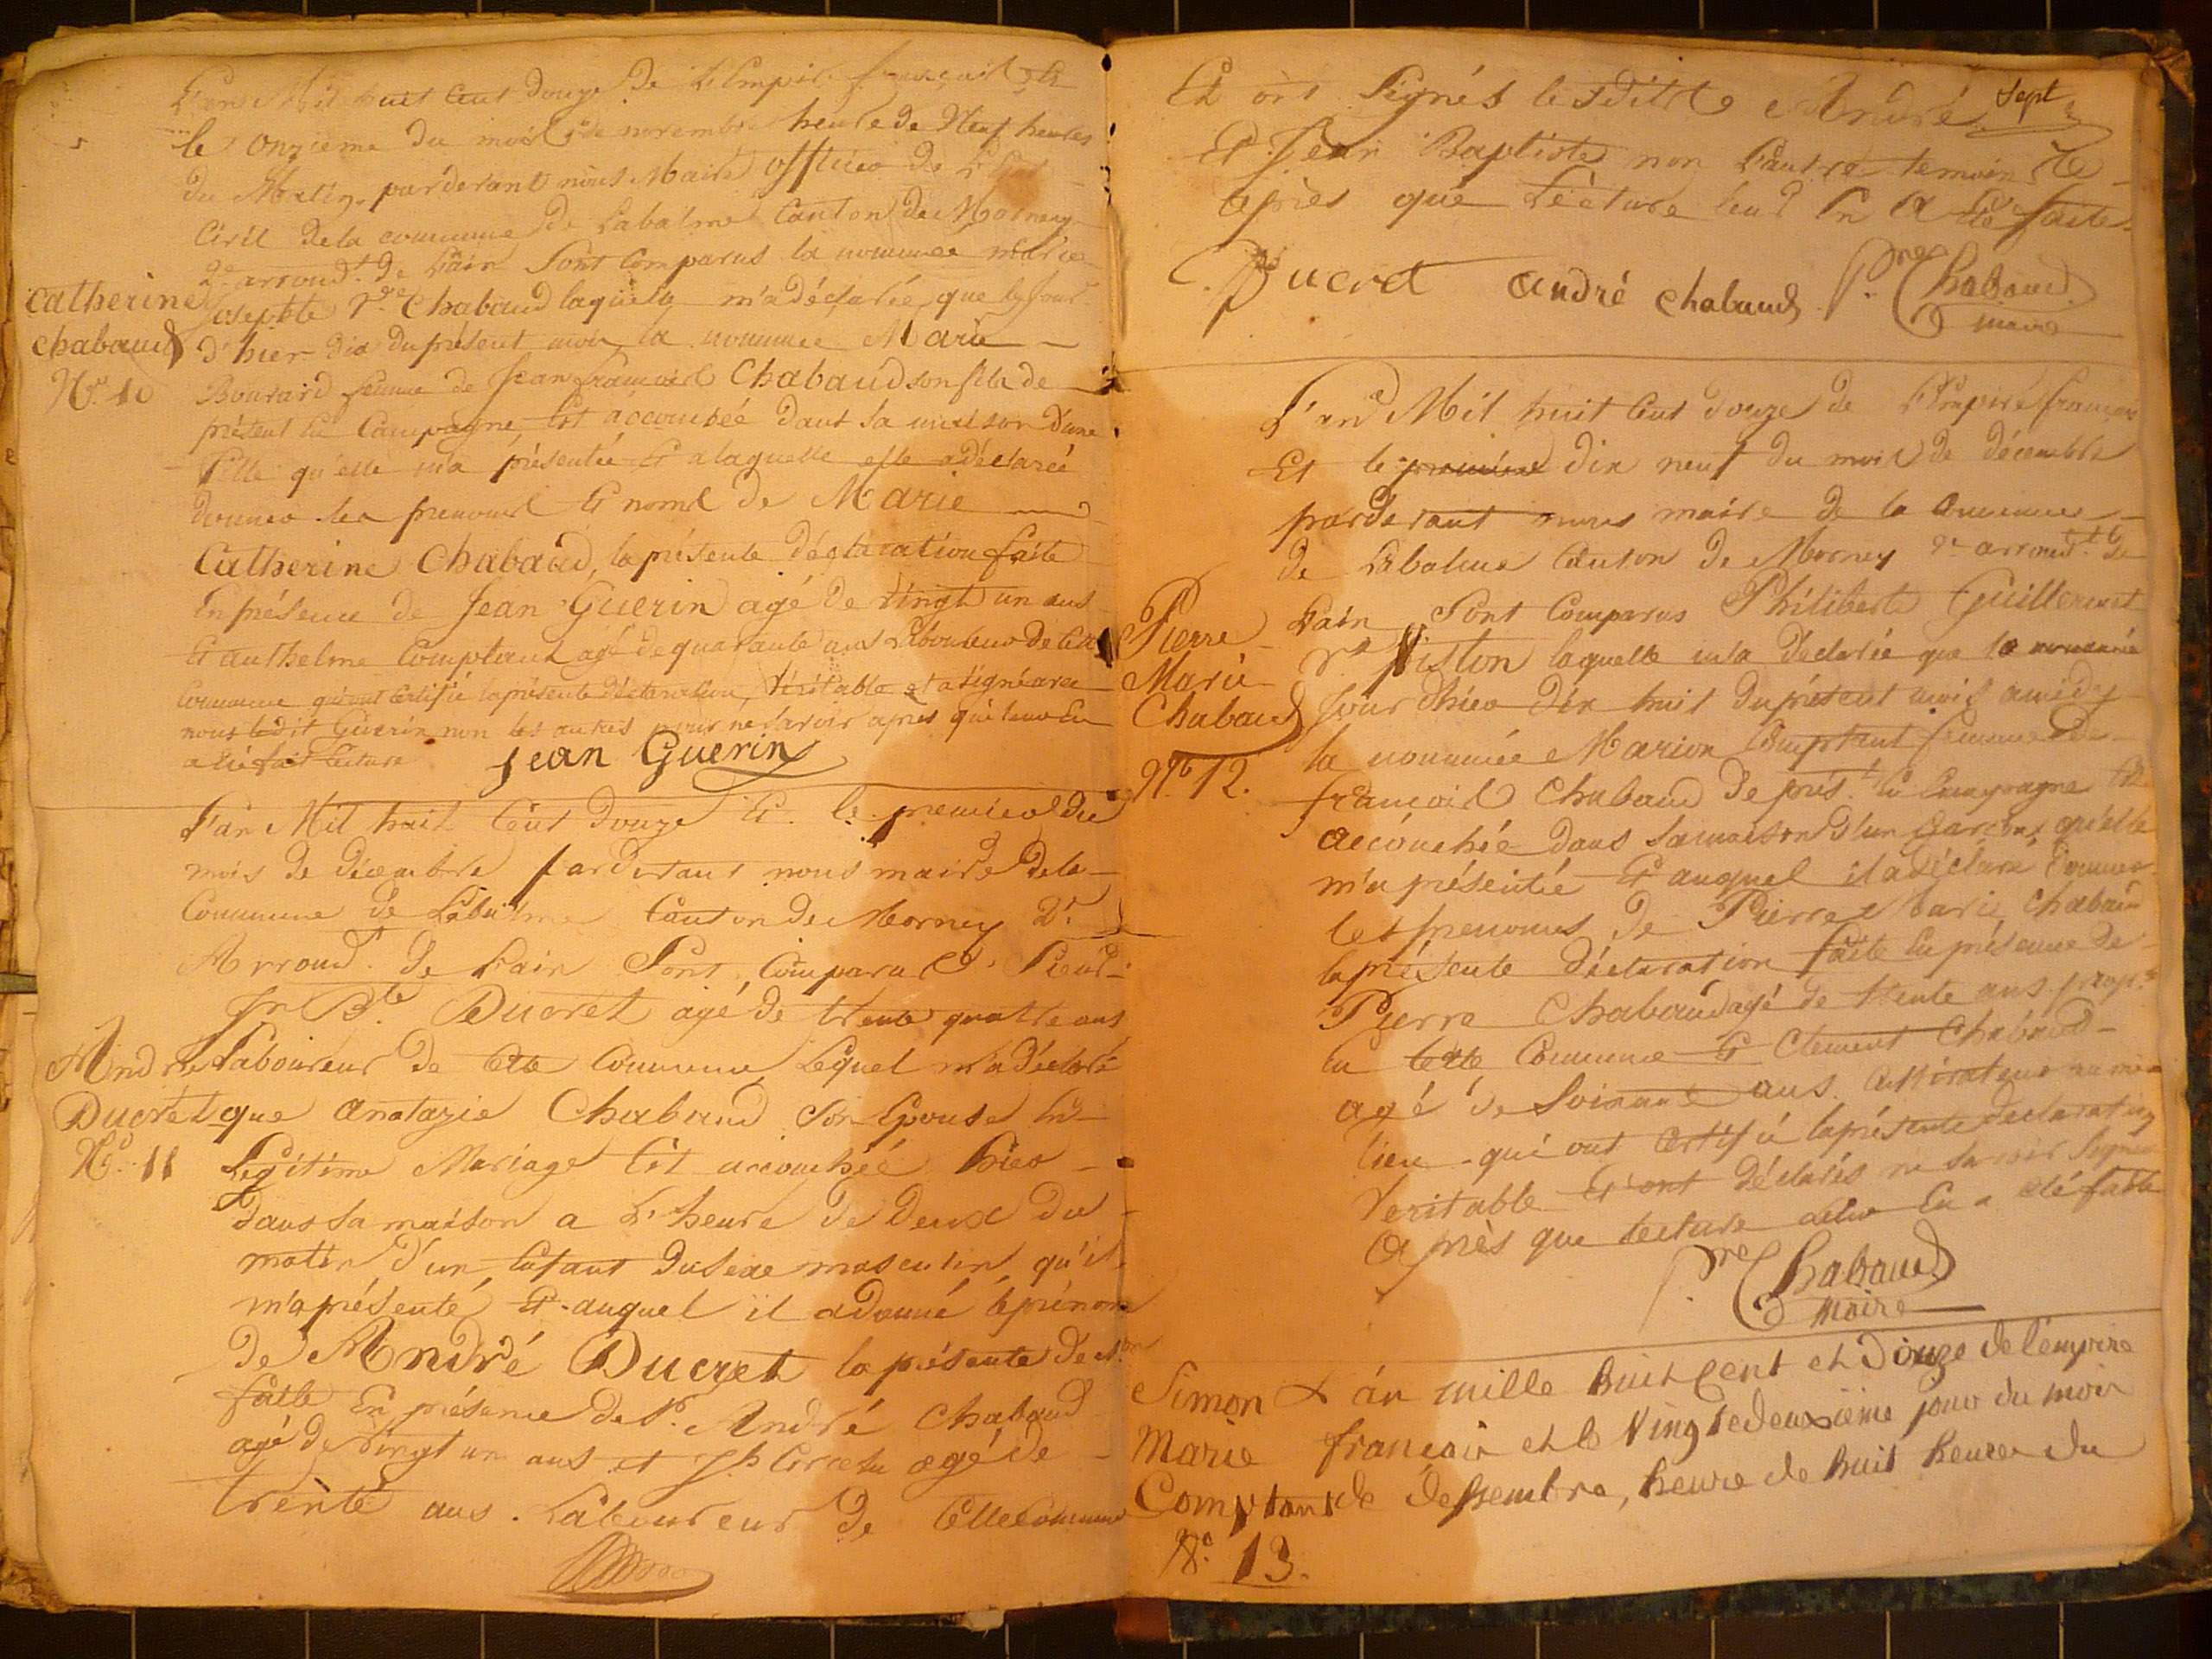 L'an Mil huit Cent douze de L'Empire françail Et
le onzieme du mois de novembre heure de Neuf heures
du Matin, parderant nous Maire officier de L'Etat
Civil de la commune de Labalme Canton de Mornay
2e arrond.t de L'ain Sont Comparus la nommée marie
Josephte v.ve Chabaud laquelle m'a déclarée que le jour
d'hier dix du présent mois la nommée Marie
Bouvard femme de Jean françoirs Chabaud son fils de
présent En Campagne Est accouchée dans sa maison d'une
fille qu'elle m'a présentée Et a laquelle elle a déclarée
donner les prenoms Et noms de Marie
Catherine Chabaud, la présente déclaration faite
En présence de Jean Guerin agé de vingt un ans
Et anthelme Comptant agé de quarante ans Laboureur de Cette
Commune qui ont Certifié la présente déclaration, Véritable et a signé avec
nous ledit Guerin non les autres pour ne savoir après que leur En
a été fait Lecture
Jean Guerin
Catherine
Chabaud
N.o 10
L'an Mil huit Cent Douze Et le premier du
mois de décembre parderant nous maire de la
Commune de Labalme Canton de Mornay 2e
Arrond.t de L'ain Sont Comparu
Jn B.te Ducret agé de trente quatre ans
Laboureur de Cette Commune, Lequel m'a déclaré
que anatazie Chabaud Son Epouse En
Légitime Mariage Est accouchée hier
dans sa maison a L'heure de Deux du
matin d'un Enfant du sexe masculin qu'il
m'a présenté Et auquel il a donné le prénom
de André Ducret la présente decl.on
faite En présence de S.r André Chabaud
agé de vingt un ans et agé de
trente ans. Laboureur de Cette Commune
André
Ducret
N.o 11
Sept
Et ont Signés lesdits André
Et Jean Baptiste non L'autre temoin Et
après que Lecture leur En a Eté faite.
Ducret andré chabaud P.re Chabaud
maire
L'an Mil huit Cent douze de L'Empire françois
Et le premier dix neuf du mois de décembre
parderant nous maire de la Commune
de Labalme Canton de Mornay 2e arrond.t de
L'ain Sont Comparus Philiberte Guillermet
v.e Piston laquelle m'a déclarée que la nommée
Jour d'hier dix huit du présent mois a midy
la nommée Marion Comptant femme de
françois Chabaud de prés.t En Campagne Est
accouchée dans sa maison d'un garçon, qu'elle
m'a présentée Et auquel il a déclaré donner
les prenoms de Pierre Marie Chabaud
la présente déclaration faite En présence de
Pierre Chabaud agé de trente ans prop.re
En Cette Commune Et Clement Chabaud
agé de Soixante ans Cultivateur même
lieu qui ont Certifié la présente declaration
Veritable Et ont déclarés ne savoir signer
après que lecture En a été faite
P.re Chabaud
Maire
Pierre
Marie
Chabaud
N.o 12.
L'an mille huit Cent et Douze de l'empire
françois et le Vingtedeuxième jour du mois
de dessembre, heure de huit heures du
Simon
Marie
Comptant
N.o 13.